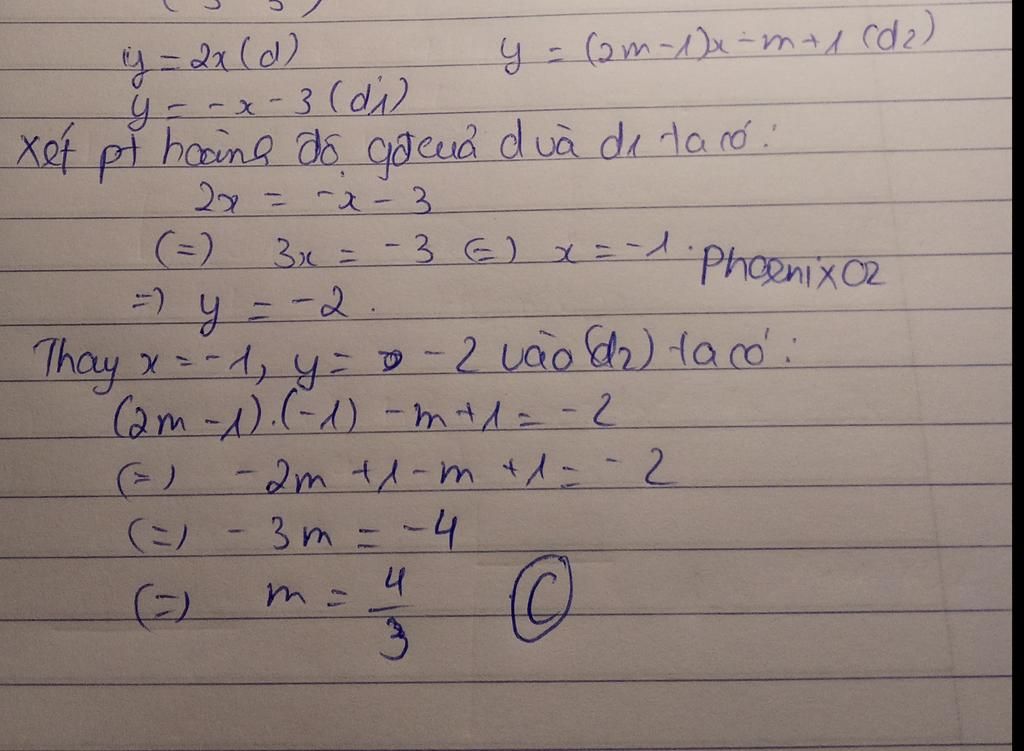 y = 2x (d) y = (2m-1)x - m+1 (d2)
y = -x - 3 (d1)
Xét pt hoành độ gđ của d và d1 ta có:
2x = -x - 3
(=) 3x = -3 (=) x = -1.
Phoenix02
=) y = -2.
Thay x = -1, y = -2 vào (d2) ta có:
(2m - 1).(-1) - m + 1 = -2
(=) -2m + 1 - m + 1 = -2
(=) -3m = -4
(=) m = 4/3 C